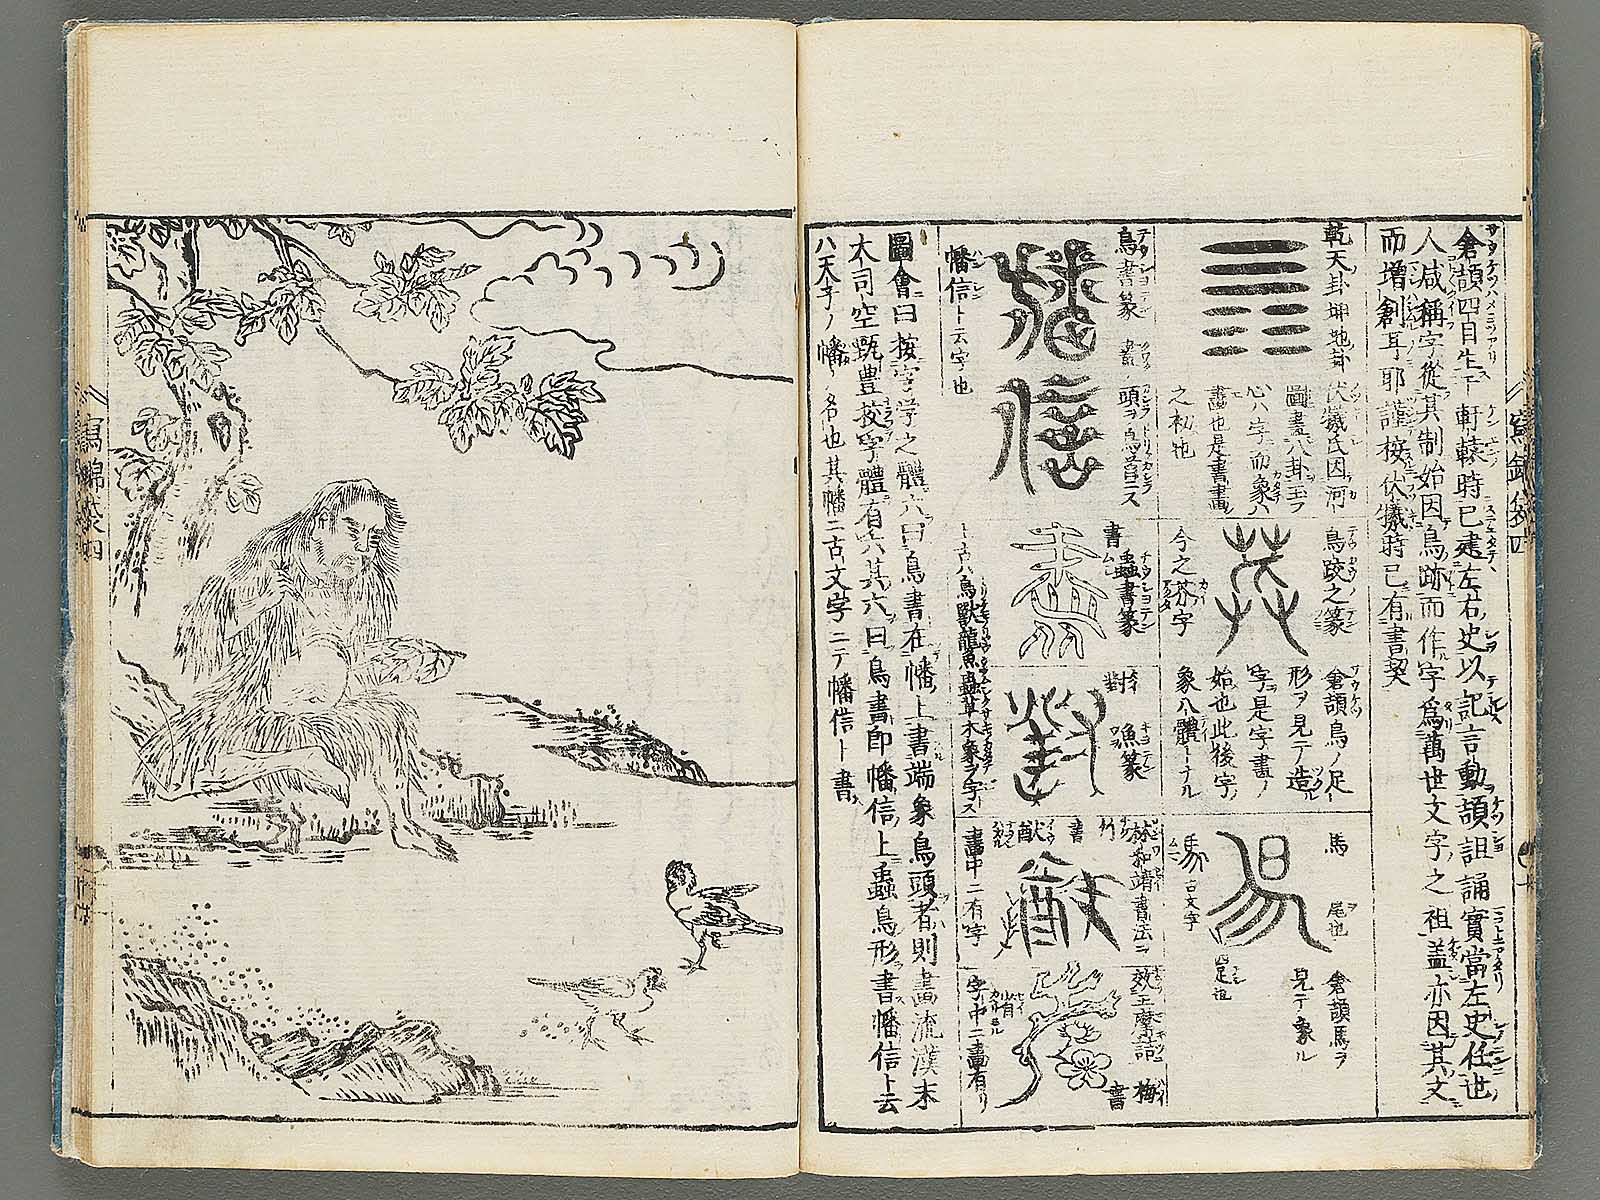 倉頡四目生于軒轅時已建左右史以記言動頡誼誦實當左史任也
人咸稱字從其制始因鳥跡而作字爲萬世文字之祖盖亦因其文
而增創耳耶謹按伏犧時已有書契
乾天卦坤地卦
伏犧氏因河
圖畫八卦
心ハ字而象ハ
畫也是書畫
之初也
鳥跤之篆
今之茶字
倉頡鳥ノ足
形ヲ見テ造ル
字是字畫ノ
始也此後字
象八體トナル
馬
尾也
古文字
四足也
倉頡馬ヲ
見テ象ル
鳥書篆
書
頭ヲ鳥首ニス
幡信
幡信ト云字也
書
蟲書篆
ト云ハ鳥獸龍魚蟲草木象ヲ字ス
對
漁篆
林和靖書法ヲ
竹
書
猷
畫中ニ有字
效王摩詰
梅
書
字中ニ畫有リ
圖會曰按字学之體六曰鳥書在幡上書端象鳥頭者則畫流漢末
太司空甄豊挍字體有六其六曰鳥書即幡信上蟲鳥形書幡信ト云
ハ天子ノ幡ノ名也其幡ニ古文字ニテ幡信ト書
寫錦袋四